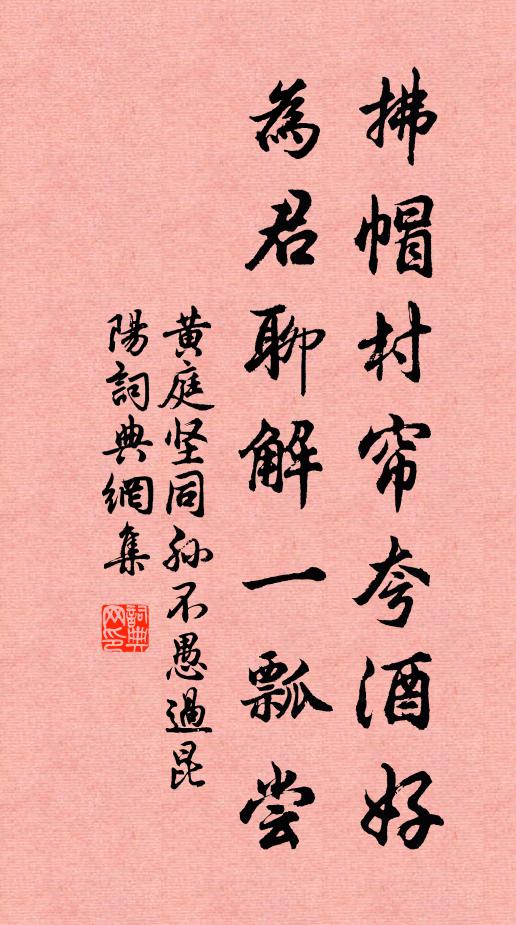 拂帽村帘夸酒好
為君聊解一瓢尝
黄庭坚同孙不愚過昆
陽詞典網集
詞典网印